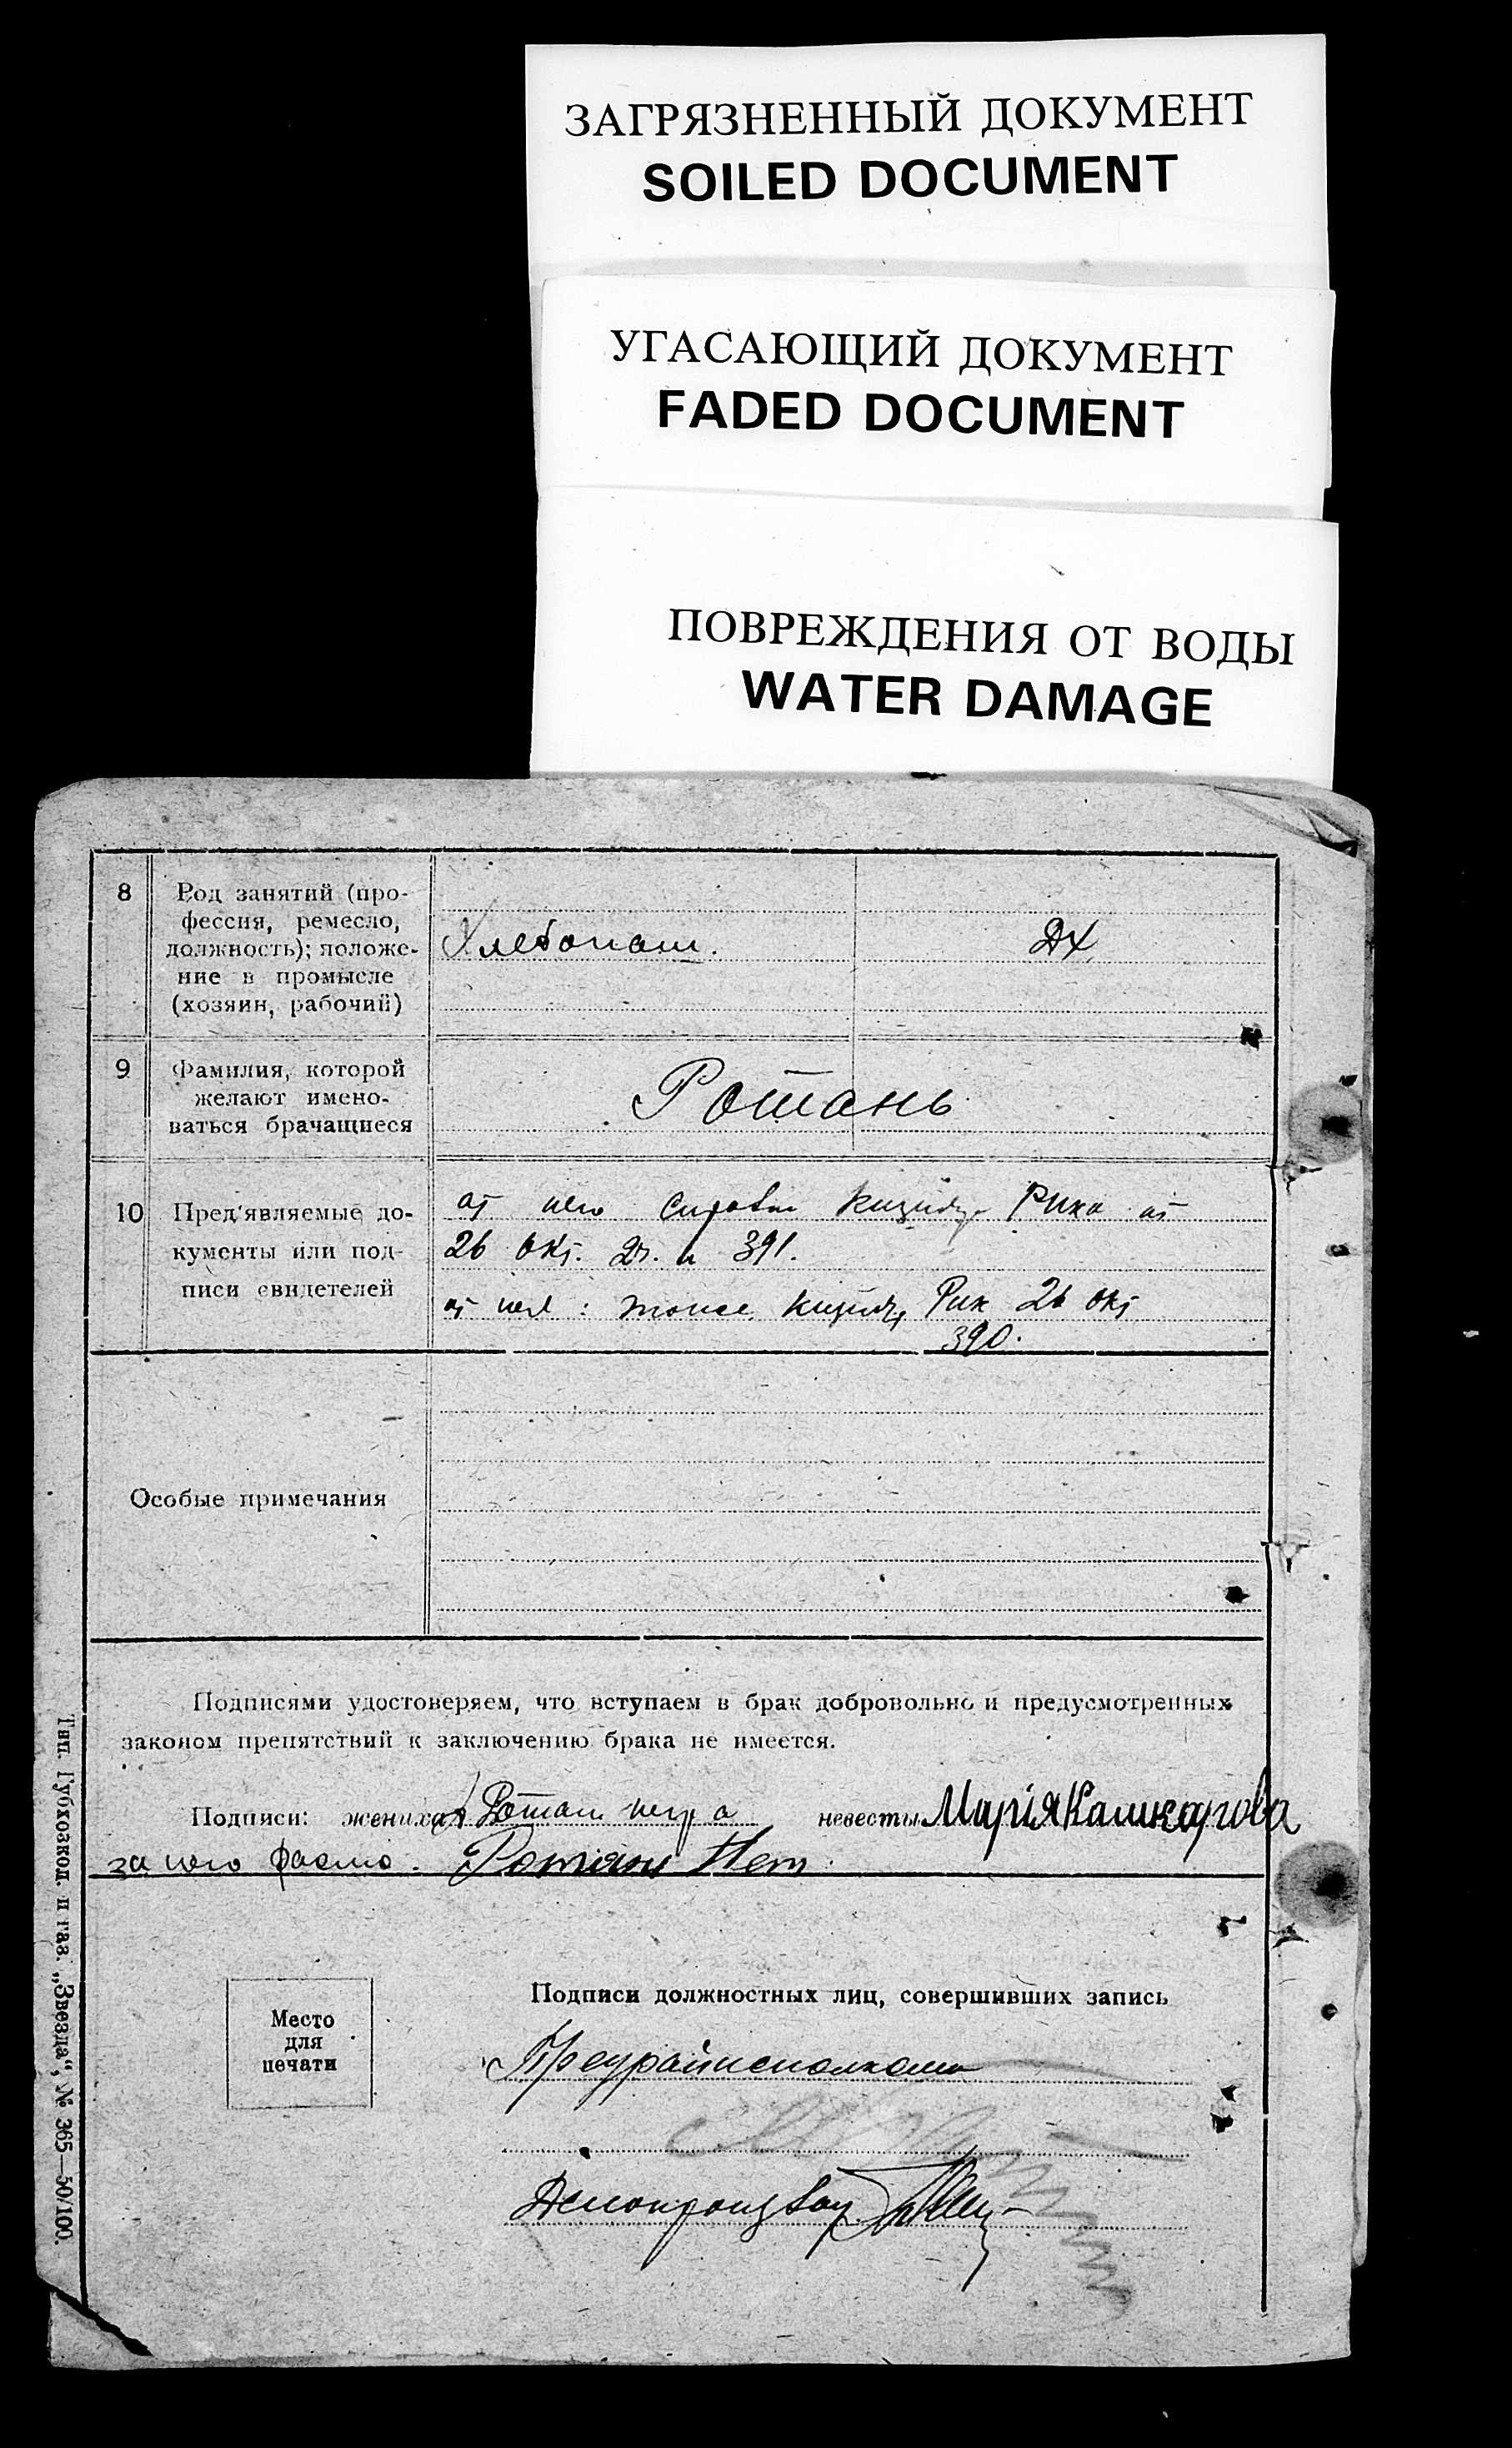 ЗАГРЯЗНЕННЫЙ ДОКУМЕНТ
SOILED DOCUMENT
УГАСАЮЩИЙ ДОКУМЕНТ
FADED DOCUMENT
ПОВРЕЖДЕНИЯ ОТ ВОДЫ
WATER DAMAGE
8
Род занятий (про-
фессия, ремесло,
должность); положе-
ние в промысле
(хозяин, рабочий)
Хлебопаш.
ДХ
9
Фамилия, которой
желают имено-
ваться брачащиеся
Ротань
10
Пред'являемые до-
кументы или под-
писи свидетелей
от него Рика от
26 окт. 391.
от нея: тоже Рик 26 окт
390.
Особые примечания
Подписями удостоверяем, что вступаем в брак добровольно и предусмотренных
законом препятствий к заключению брака не имеется.
Подписи: жениха Ротань невесты Марія
за него Ротань
Место
для
печати
Подписи должностных лиц, совершивших запись
Предрайисполкома
Делопроизвод
Тип. Губхозкол. и газ. „Звезда“, № 365—50/100.